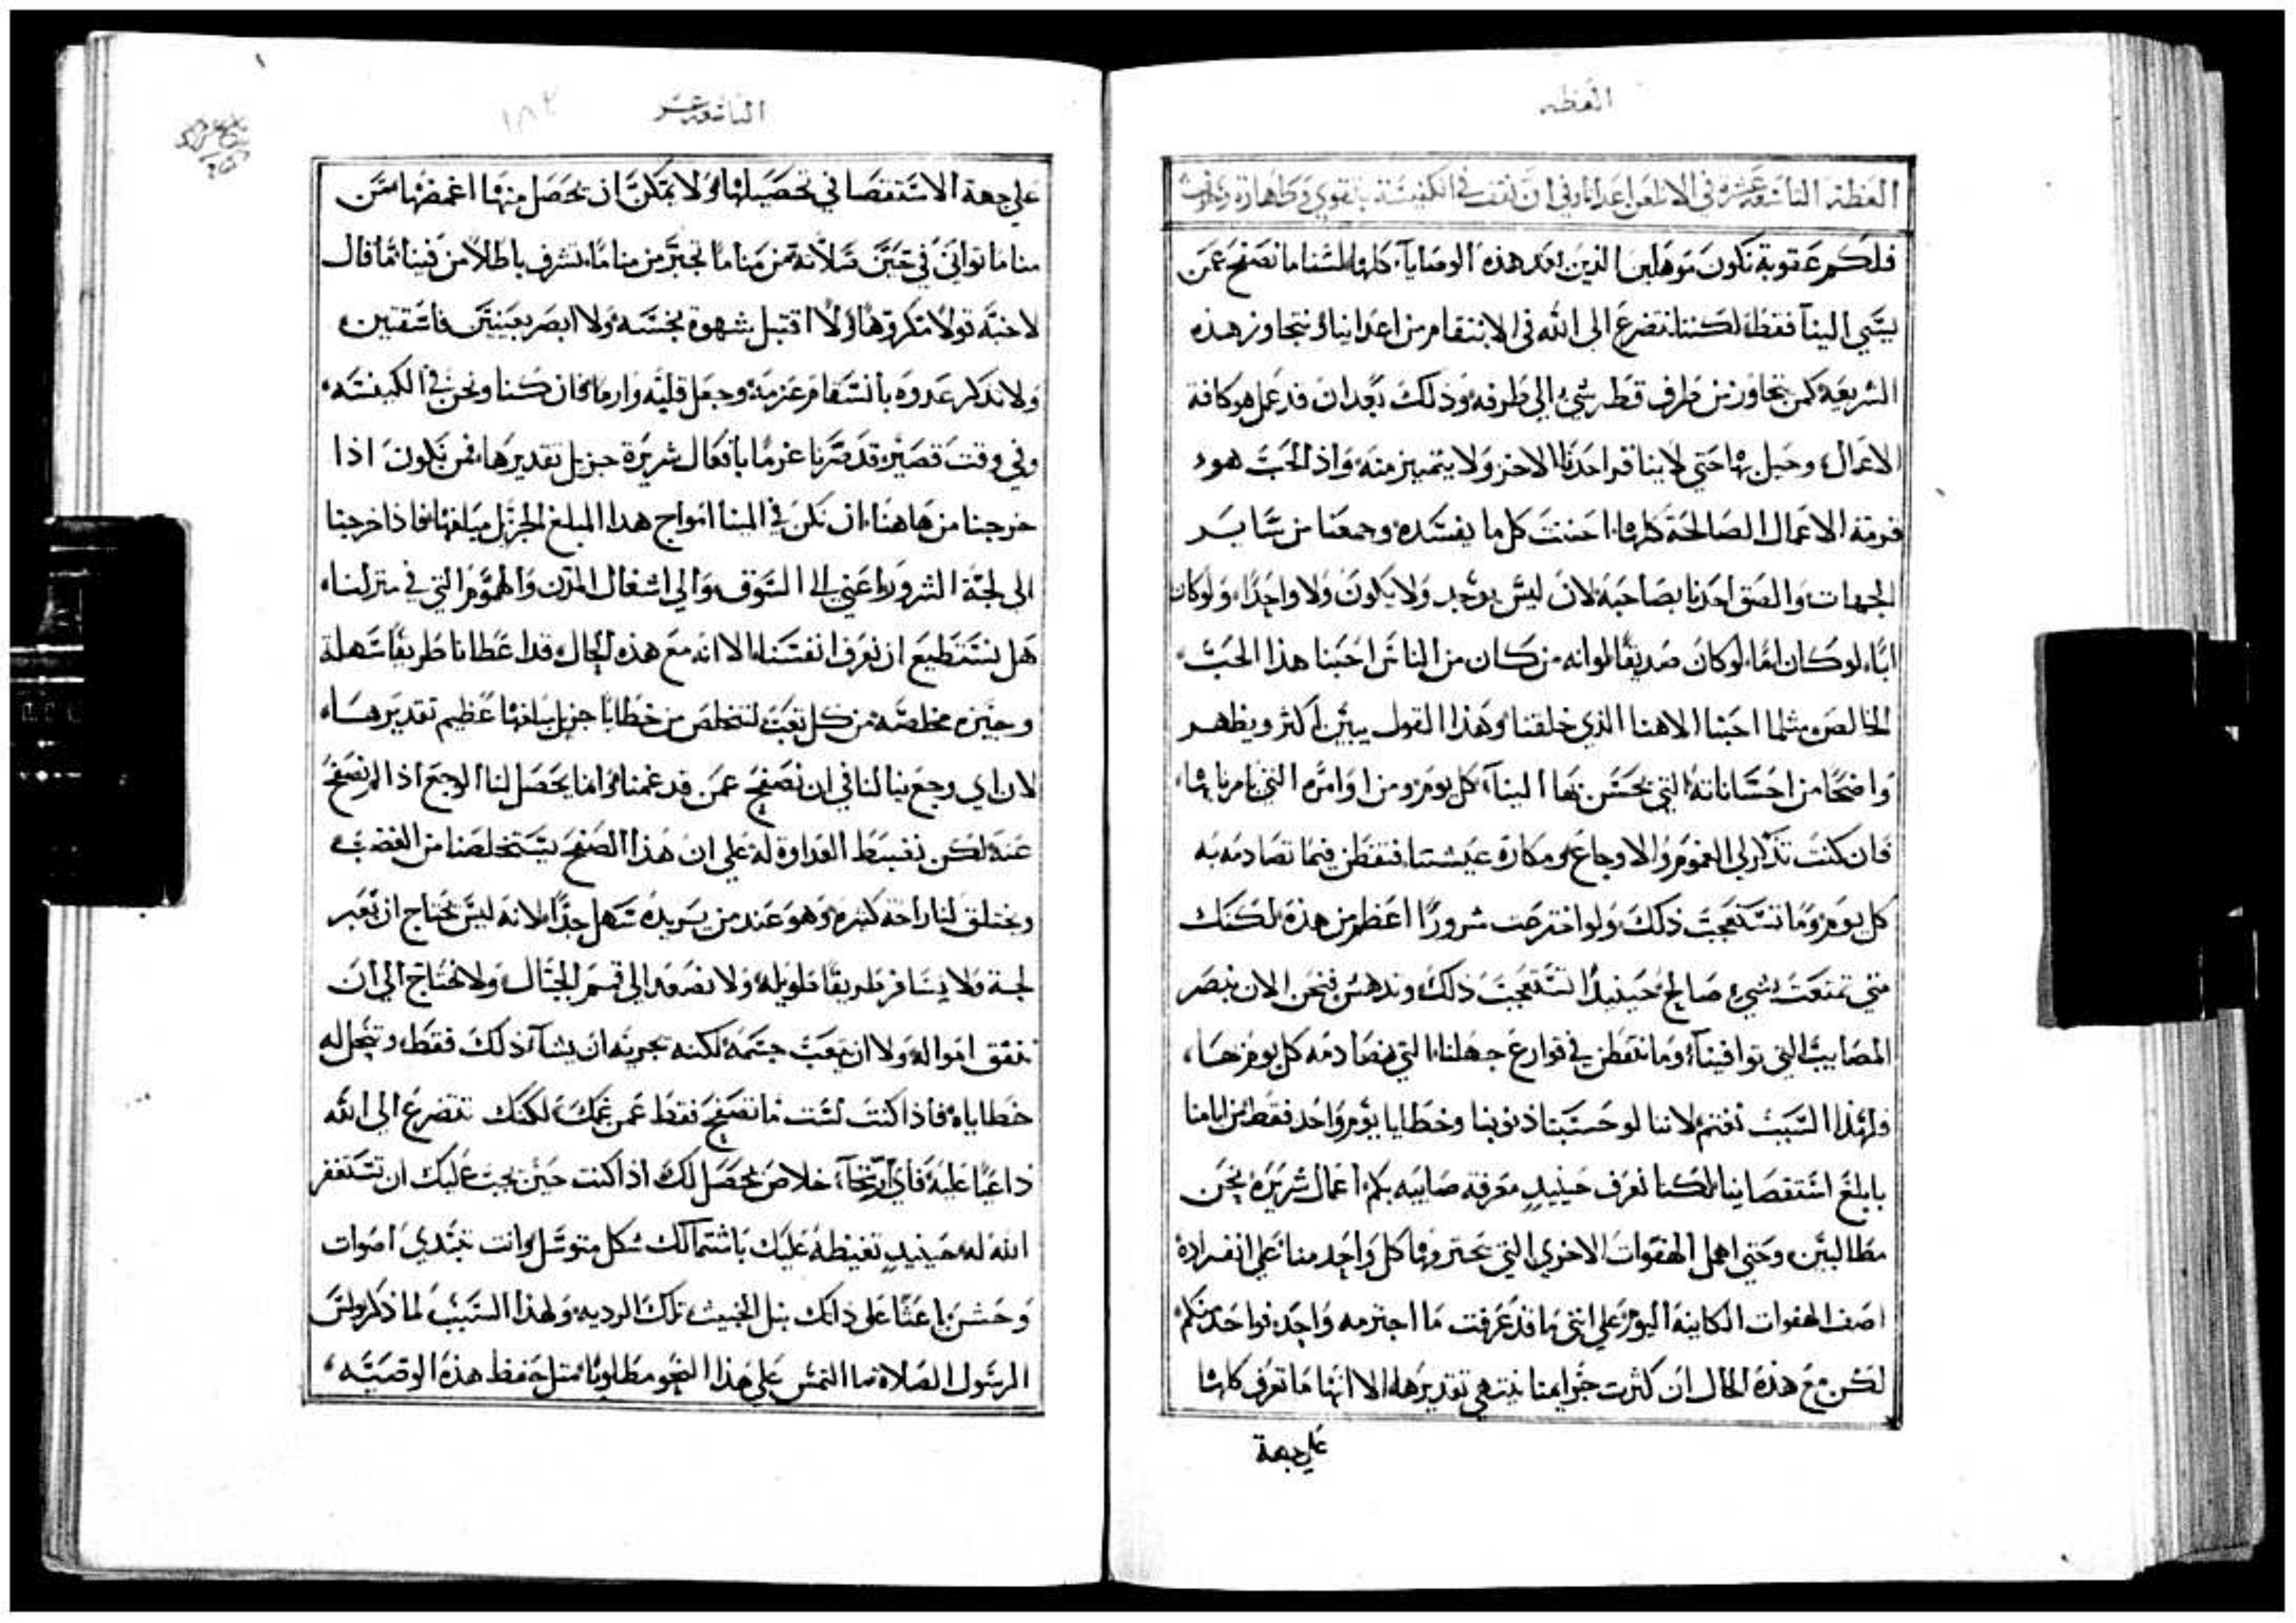 العظه
العظة التاسعة عشرة في الا نلعن اعدانا وفي ان نقف في الكنيسة بتقوي وطهارة
فلكم عقوبة نكون موهلين الذين بعد هذه الوصايا كلها لسنا ما نصفح عمن
يسي الينا فقط لكننا نتضرع الي الله في الانتقام من اعداينا ونتجاوز هذه
الشريعة كمن يتجاوز من طرف قطر شي الي طرفه وذلك بعد ان قد عمل هو كافة
الاعمال وحيل بها حتي لا يناقر احدنا الاخر ولا يتميز منه واذ الحب هو
الاعمال الصالحة كلها احتت كل ما يفسده وجمعنا من ساير
الجهات والصق احدنا بصاحبه لان ليس يوجد ولا يكون ولا واحدا ولو كان
ابا لو كان اما لو كان صديقا لو انه من كان من الناس احبنا هذا الحب
الخالص مثلما احبنا الاهنا الذي خلقنا وهذا القول يبين اكثر ويظهر
واضحا من احساناته التي يحسن بها الينا كل يوم ومن اوامره التي يامرنا بها
فان كنت تذكر لي الغموم والاوجاع ومكارة عيشتنا فتفطن فيما تصادمه به
كل يوم وما تستعجب ذلك ولو اخترعت شرورا اعظم من هذه لكنك
متي تمتعت بشي صالح حينيذ تستعجب ذلك وتدهش فنحن الان نبصر
المصايب التي توافينا وما نتفطن في قوارع جهلنا التي نصادمه كل يوم بها
فلهذا السبب نغتم لاننا لو حسبنا ذنوبنا وخطايا يوم واحد فقط من ايامنا
بابلغ استقصاينا لكنا نعرف حينيذ معرفة صايبه بكم اعمال شريرة نحن
مطالبين وحتي اهمل الهفوات الاخري التي يجترمها كل واحد منا علي انفراده
اصف الهفوات الكاينه اليوم علي انني ما قد عرفت ما اجترمه واحد فواحد منكم
لكن مع هذه الحال ان كثرت جرايمنا تقديرها الا انها ما تعرف كلها
علي جهة
التاسعة عشر
١٨٢
علي جهة الاستقصا في تحصيلها ولا يمكن ان يحصل منها اغمضها من
منا ما تواني في حين صلاته من منا ما تجبر من منا ما تشرف باطلا من فينا ما قال
لاخيه قولا مكروها ولا اقتبل شهوة نجسه ولا ابصر بعينين فاسقتين
ولا تذكر عدوه بانسقام عزمه وجعل قلبه وارما فان كنا ونحن في الكنيسه
وفي وقت قصير قد صرنا غرما بافعال شريرة جزيل تقديرها فمن نكون اذا
خرجنا من هاهنا ان نكن في المينا امواج هذا المبلغ الجزيل مبلغها فاذا خرجنا
الي لجة الشرور اعني الي السوق والي اشغال المدن والهموم التي في منزلنا
هل نستطيع ان نعرف انفسنا الا انه مع هذه الحال قد اعطانا طريقا سهلة
وجيزه مخلصه من كل تعب لنتخلص من خطايا جزيل مبلغها عظيم تقديرها
لان اي وجع ينالنا في ان نصفح عمن قد غمنا وانما يحصل لنا الوجع اذا لم نصفح
عنه لكن نغبط العداوة له علي ان هذا الصفح يستخلصنا من الغضب
ويختلق لنا راحة كثيره وهو عند من يريده سهل جدا لانه ليس يحتاج ان نعبر
لجة ولا يسافر طريقا طويله ولا نصعد الي قمم الجبال ولا نحتاج الي ان
ننفق امواله ولا ان يتعب جسمه لكنه يجزيه ان يشا ذلك فقط وتنحل له
خطاياه فاذا كنت لست ما تصفح فقط عمن غمك لكنك تتضرع الي الله
داعيا عليه فاي رجا خلاص يحصل لك اذا كنت حين يجب عليك ان تستغفر
الله له حينيذ تغيظه عليك باشتمالك شكل متوسل وانت تبتدي اصوات
وحش باعثا علي ذاتك نبل الخبيث تلك الرديه ولهذا السبب لما ذكر بولس
الرسول الصلاة ما التمس علي هذا النحو مطلوبا مثل حفظ هذه الوصيه